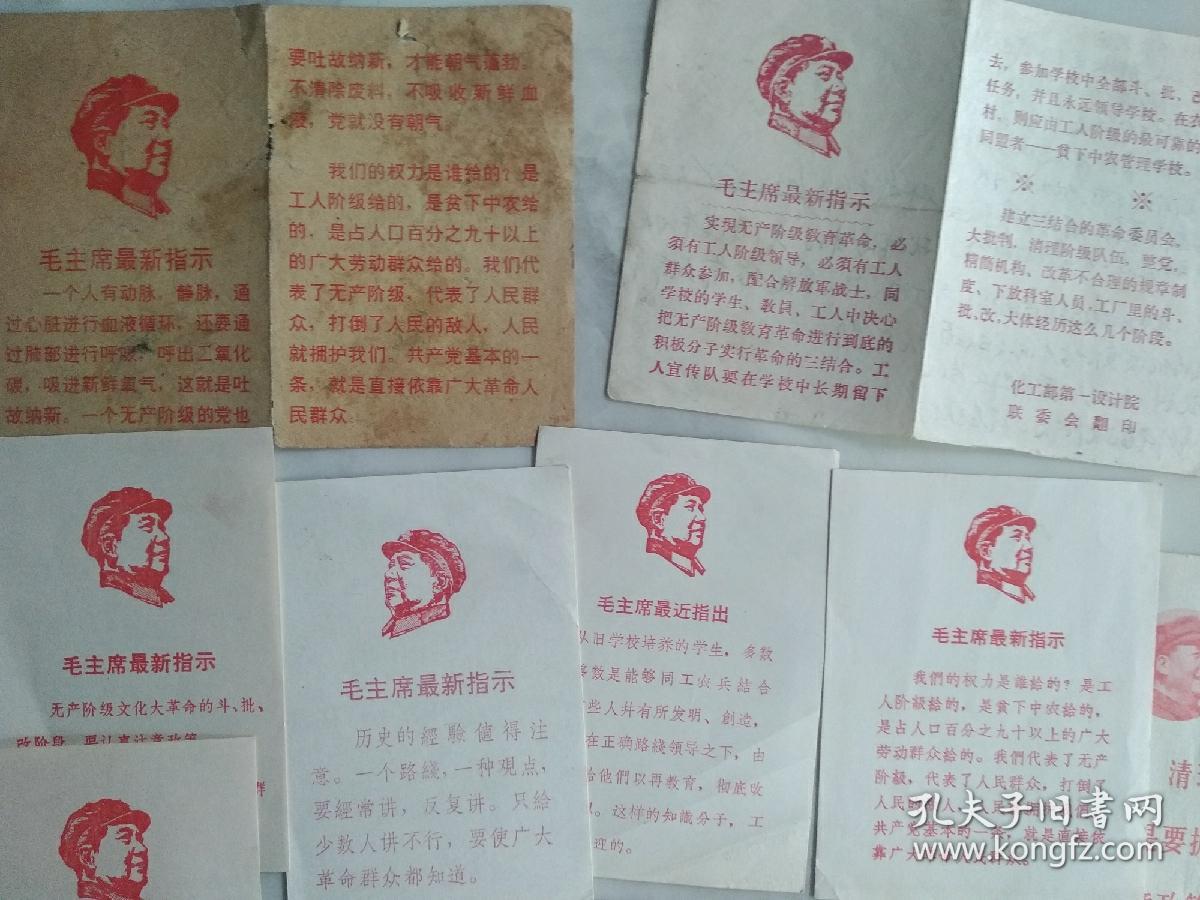 毛主席最新指示
一个人有动脉、静脉，通
过心脏进行血液循环，还要通
过肺部进行呼吸，呼出二氧化
碳，吸进新鲜氧气，这就是吐
故纳新。一个无产阶级的党也
要吐故纳新，才能朝气蓬勃。
不清除废料，不吸收新鲜血
液，党就没有朝气。
我们的权力是谁给的？是
工人阶级给的，是贫下中农给
的，是占人口百分之九十以上
的广大劳动群众给的。我们代
表了无产阶级，代表了人民群
众，打倒了人民的敌人，人民
就拥护我们。共产党基本的一
条，就是直接依靠广大革命人
民群众。
毛主席最新指示
实現无产阶级敎育革命，必
須有工人阶级領导，必須有工人
群众参加，配合解放軍战士，同
学校的学生、敎員、工人中决心
把无产阶级敎育革命进行到底的
积极分子实行革命的三結合。工
人宣传队要在学校中长期留下
去，参加学校中全部斗、批、改
任务，并且永远領导学校。在农
村，则应由工人阶级的最可靠的
同盟者——貧下中农管理学校。
※ ※
建立三結合的革命委员会，
大批判，清理阶级队伍，整党，
精简机构、改革不合理的規章制
度、下放科室人員，工厂里的斗、
批、改，大体经历这么几个阶段。
化工部第一设计院
联委会翻印
毛主席最新指示
无产阶级文化大革命的斗、批、
改阶段，要认真注意政策
群
毛主席最新指示
历史的經驗値得注
意。一个路綫，一种观点，
要經常讲，反复讲。只給
少数人讲不行，要使广大
革命群众都知道。
毛主席最近指出
从旧学校培养的学生，多数
多数是能够同工农兵結合
些人并有所发明、創造，
在正确路綫領导之下，由
給他們以再教育，彻底改
这样的知識分子，工
迎的。
毛主席最新指示
我們的权力是誰給的？是工
人阶級給的，是貧下中农給的，
是占人口百分之九十以上的广大
劳动群众給的。我們代表了无产
阶級，代表了人民群众，打倒了
人民
共产党基本的一条，就是直接依
靠广大
清
是要
孔夫子旧书网
www.kongfz.com